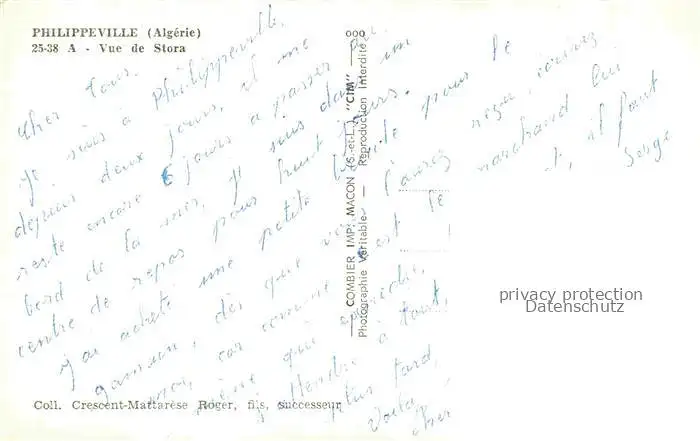 PHILIPPEVILLE (Algérie)
25-38 A - Vue de Stora
Cher tous.
Je suis à Philippeville
depuis deux jours, il me
reste encore 6 jours à passer au
bord de la mer, je suis dans un
centre de repos pour huit jours.
j'ai acheté une petite pour le
gamin, dès que vous l'aurez reçu,
car comme est le marchand lui
même qui expédie, il faut
Serge
plus tard,
Voilà
COMBIER IMP. MACON (S.-et-L.) "CIM"
Photographie Véritable - Reproduction Interdite
privacy protection
Datenschutz
Coll. Crescent-Mattarèse Roger, fils, successeur